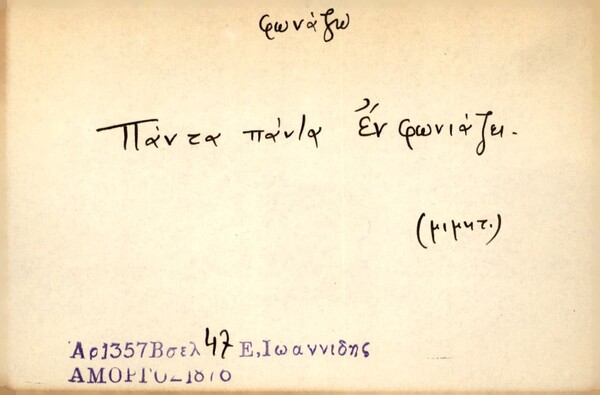 φωνάζω
Πάντα πάντα ἔν φωνιάζει.
(μιμητ.)
Ἀρ1357Βσελ 47 Ε,Ιωαννιδης
ΑΜΟΡΓΟΣ1876